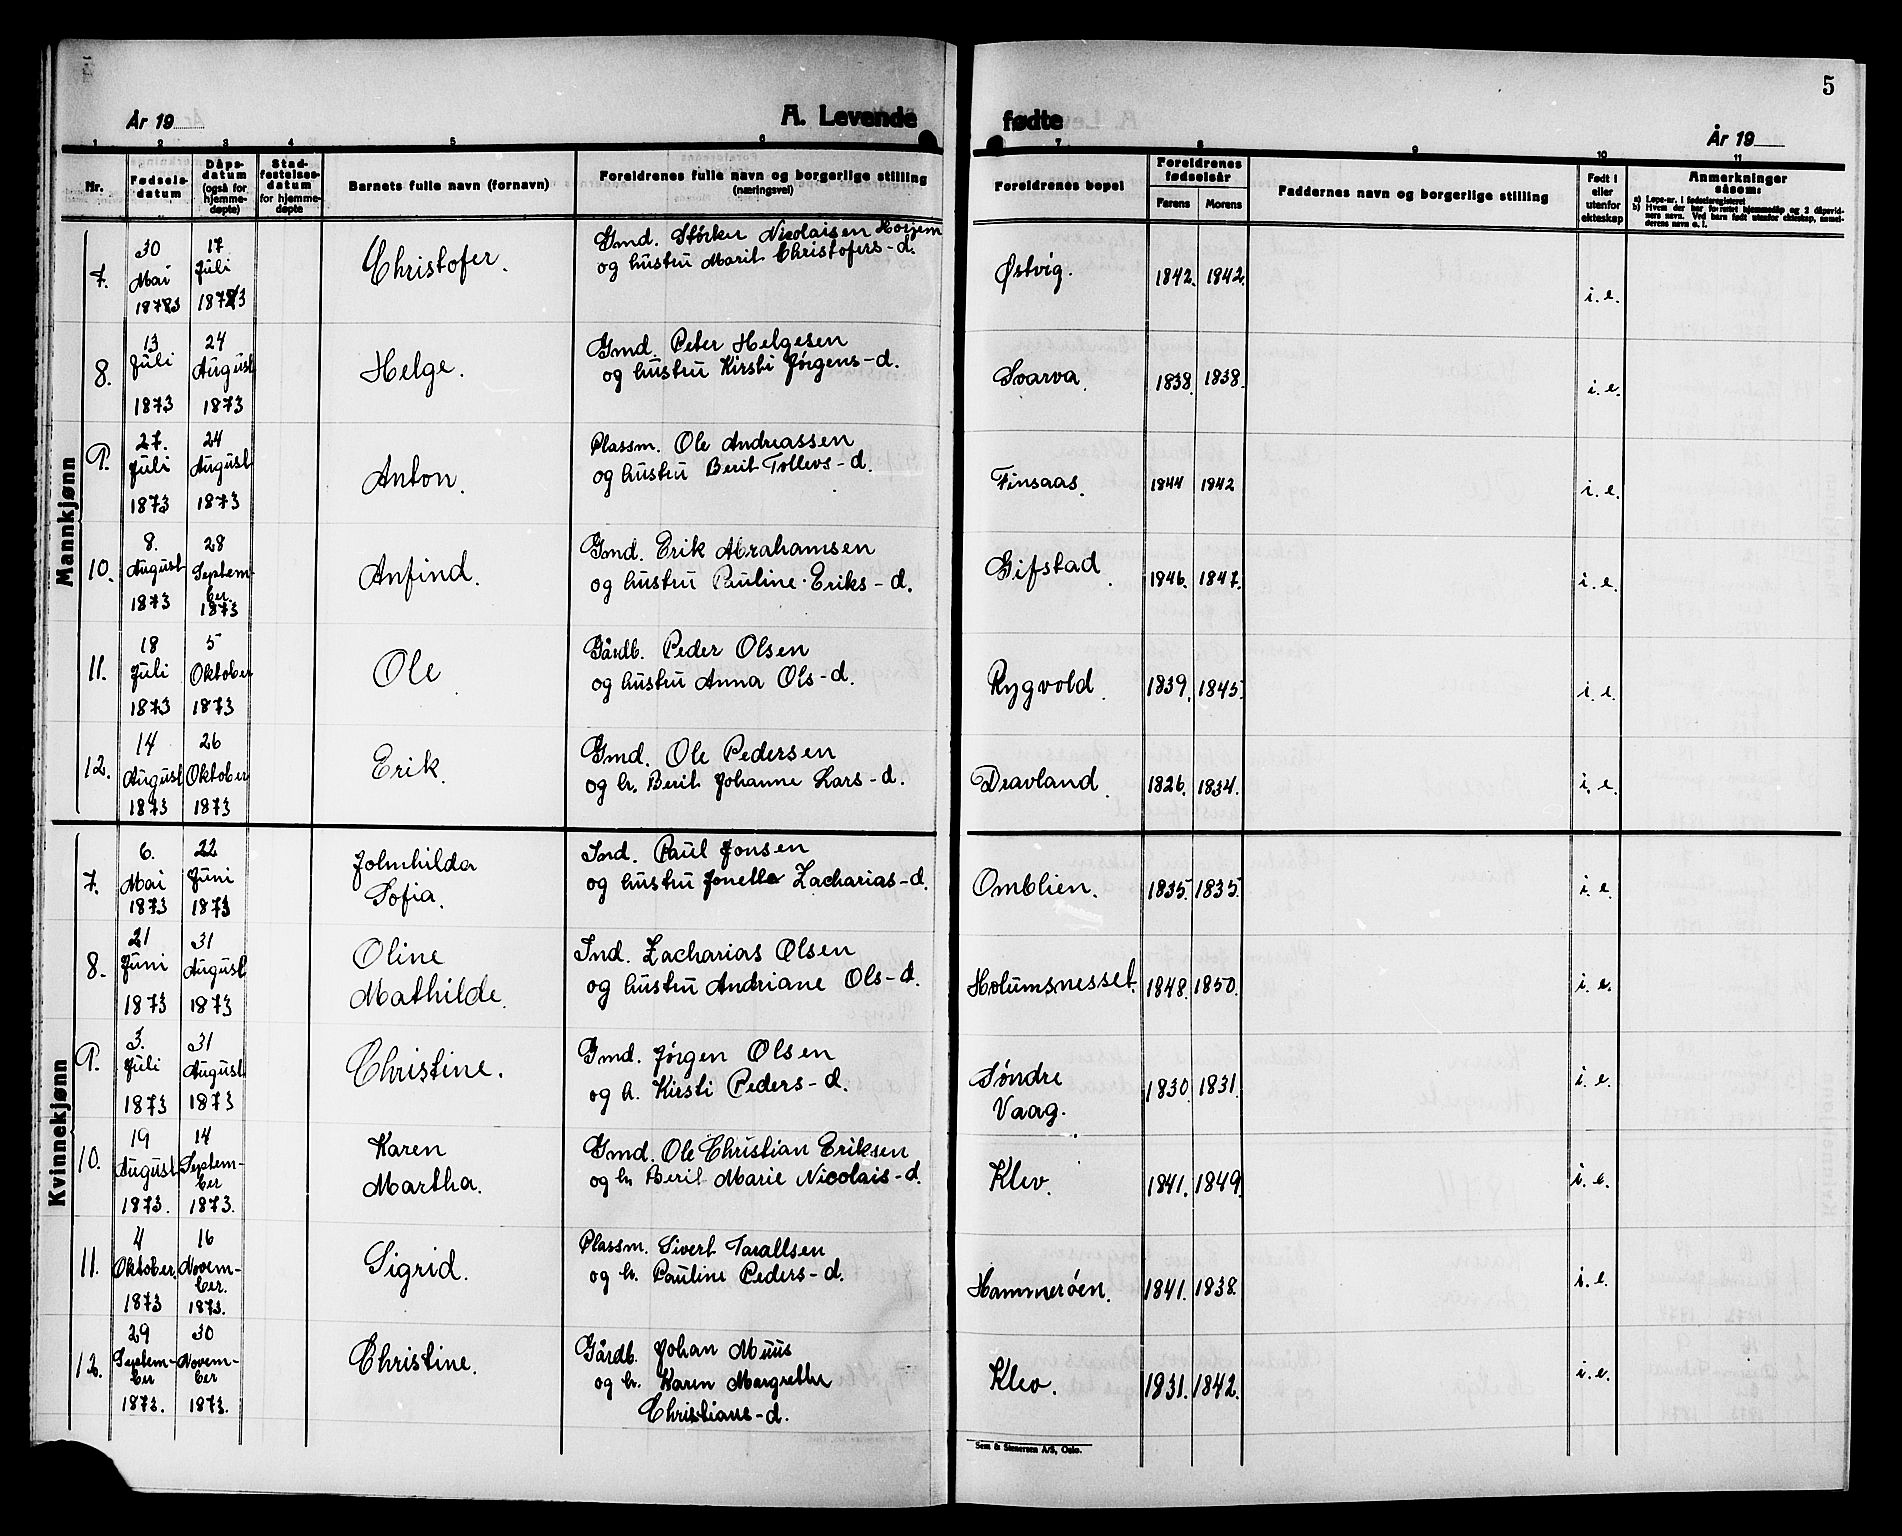 5
År 19
A. Levende
fødte
År 19
1 2 3 4 5 6 7 8 9 10 11
Nr.
Fødsels-
datum
Dåps-
datum
(også for
hjemme-
døpte)
Stad-
festelses-
datum
for hjemme-
døpte
Barnets fulle navn (fornavn)
Foreldrenes fulle navn og borgerlige stilling
(næringsvei)
Foreldrenes bopel
Foreldrenes
fødselsår
Farens Morens
Faddernes navn og borgerlige stilling
Født i
eller
utenfor
ekteskap
Anmerkninger
såsom:
a) Løpe-nr. i fødselsregisteret
b) Hvem der har forrettet hjemmedåp og 2 dåpsvid-
ners navn. Ved barn født utenfor ekteskap,
Mannkjønn
7. 30 Mai 1873 17 Juli 1873 Christofer. Gmd. Størker Nicolaisen Horjem
og hustru Marit Christofers-d. Østvig. 1842. 1842. i. e.
8. 13 Juli 1873 24 August 1873 Helge. Gmd. Peter Helgesen
og hustru Kirsti Jørgens-d. Svarva. 1838 1838. i. e.
9. 27. Juli 1873 24 August 1873 Anton. Plassm. Ole Andreassen
og hustru Berit Tollevs-d. Finsaas. 1844 1842 i. e.
10. 8. August 1873 28 September 1873 Anfind. Gmd. Erik Abrahamsen
og hustru Pauline Eriks-d. Gifstad. 1846. 1847. i. e.
11. 18 Juli 1873 5 Oktober 1873 Ole Gårdb. Peder Olsen
og hustru Anna Ols-d. Rygvold. 1839. 1845. i. e.
12. 14 August 1873 26 Oktober 1873 Erik. Gmd. Ole Pedersen
og h. Berit Johanne Lars-d. Dravland. 1826. 1834. i. e.
Kvinnekjønn
7. 6. Mai 1873 22 Juni 1873 Johnhilda
Sofia. Ind. Paul Jonsen
og hustru Jonetta Zacharias-d. Omblien. 1835. 1835. i. e.
8. 21 Juni 1873 31 August 1873 Oline
Mathilde. Ind. Zacharias Olsen
og hustru Andriane Ols-d. Holumsnesset. 1848. 1850. i. e.
9. 3. Juli 1873 31 August 1873 Christine. Gmd. Jørgen Olsen
og h. Kirsti Peders-d. Søndre
Vaag. 1830. 1831. i. e.
10. 19 August 1873. 14 September 1873. Karen
Martha. Gmd. Ole Christian Eriksen
og h. Berit Marie Nicolais-d. Klev. 1841. 1849. i. e.
11. 4 Oktober. 1873 16 November. 1873. Sigrid. Plassm. Sivert Tarallsen
og h. Pauline Peders-d. Hammerøen. 1841. 1838. i. e.
12. 29 September 1873. 30 November 1873. Christine. Gårdb. Johan Muus
og h. Karen Margrethe
Christians-d. Klev. 1931. 1842. i. e.
Sem & Stenersen A/S, Oslo.